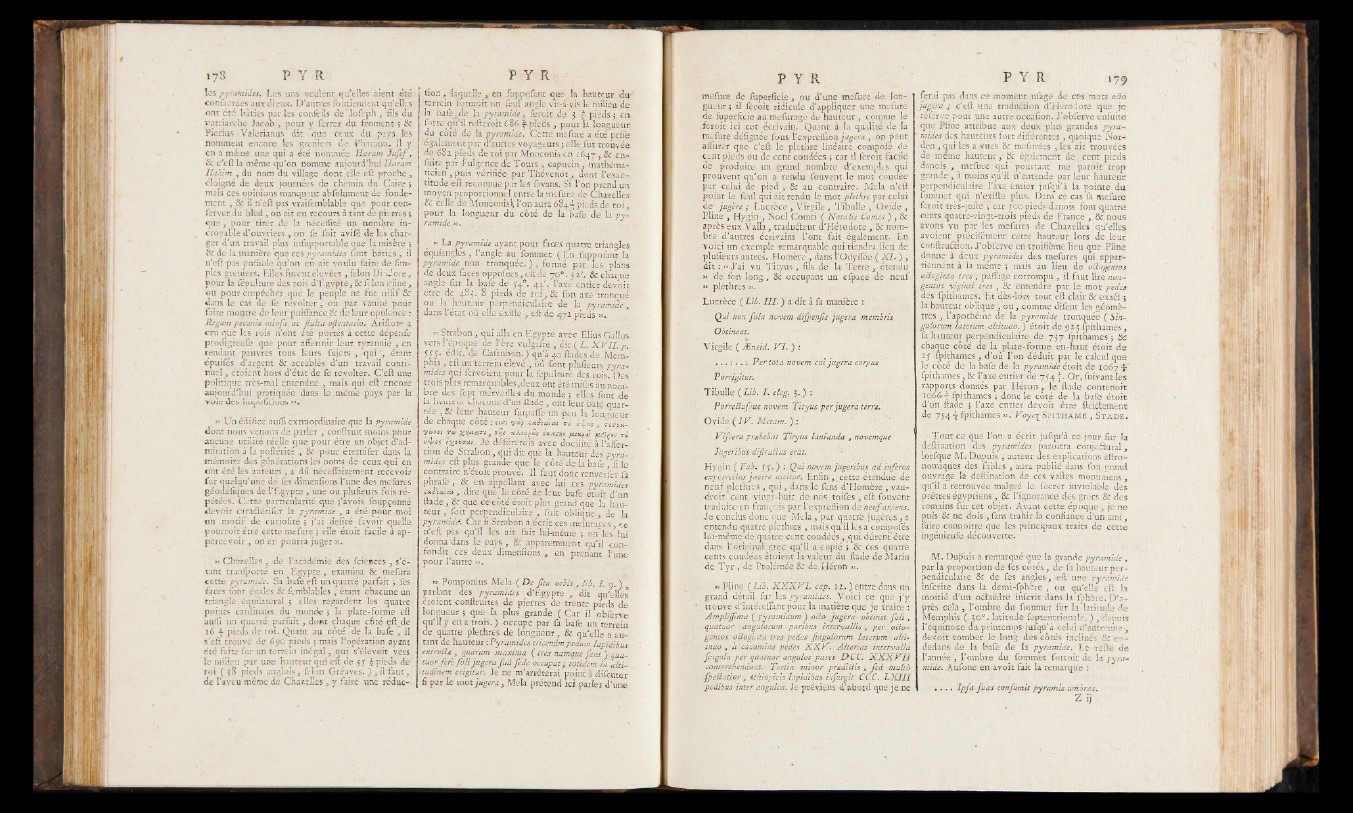 178 P Y R P Y R
les pyramides. Les uns veulent qu'elles aient été
consacrées aux dieux. D'autres soutiennent qu'elles
ont été bâties par les conseils de Joseph, fils du
patriarche Jacob, pour y serrer du froment ; &
Pierius Valerianus dit que ceux du pays les
nomment encore les greniers de Pharaon. Il y
en a même une qui a été nommée Haram Jusef,
& c'est la même qu'on nomme aujourd'hui Haram
, du nom du village dont elle est proche,
éloigné de deux journées de chemin du Caire ;
mais ces opinions manquent absolument de fonde-
ment, & il n'est pas vraisemblable que pour con-
server du bled, on ait eu recours à tant de pierres ;
que, pour tirer de la nécessité un nombre in-
croyable d'ouvriers, on se soit avisé de les char-
ger d'un travail plus insupportable que la misère ;
& de la manière que ces pyramides sont bâties, il
n'est pas possible qu'on en ait voulu faire de sim-
ples greniers. Elles furent élevées, selon Diodore,
pour la sépulture des rois d'Egypte, & selon Pline,
ou pour empêcher que le peuple ne fût oisif &
dans le cas de se révolter, ou par vanité pour
faire montre de leur puissance & de leur opulence :
Regum pecuniæ otiosa ac stulta ostentatio. Aristote a
cru que les rois n'ont été portés à cette dépense
prodigieuse que pour affermir leur tyrannie, en
rendant pauvres tous leurs sujets, qui, étant
épuisés d'argent & accablés d'un travail conti-
nuel, étoient hors d'état de se révolter. C'est une
politique très-mal entendue, mais qui est encore
aujourd'hui pratiquée dans le même pays par la
voie des impositions ».
» Un édifice aussi extraordinaire que la pyramide
dont nous venons de parler, construit moins pour
aucune utilité réelle que pour être un objet d'ad-
miration à la postérité, & pour éterniser dans la
mémoire des générations les noms de ceux qui en
ont été les auteurs, a dû nécessairement recevoir
sur quelqu'une de ses dimensions l'une des mesures
géodésiques de l'Egypte, une ou plusieurs fois ré-
pétées. Cette particularité que j'avois soupçonné
devoir caractériser la pyramide, a été pour moi
un motif de curiosité ; j'ai desiré savoir quelle
pourroit être cette mesure ; elle étoit facile à ap-
percevoir, on en pourra juger ».
» Chazelles, de l'académie des sciences, s'é-
tant transporté en Egypte, examina & mesura
cette pyramide. Sa base est un quarré parfait ; ses
faces sont égales & semblables, étant chacune un
triangle équilatéral ; elles regardent les quatre
points cardinaux du monde ; la plate-forme est
aussi un quarré parfait, dont chaque côté est de
16 ⅔ pieds de roi. Quant au côté de la base, il
s'est trouvé de 690 pieds ; mais l'opération ayant
été faite sur un terrein inégal, qui s'élevoit vers
le milieu par une hauteur qui est de pieds de
roi ( 38 pieds anglois, selon Gréaves. ), il faut,
de l'aveu même de Chazelles, y faire une réduc-
tion, laquelle, en supposant que la hauteur du
terrein formoit un seul angle vis-à-vis le milieu de
la base de la pyramide, seroit de 3 pieds ; en
sorte qu'il resteroit 686 pieds, pour la longueur
du côté de la pyramide. Cette mesure a été prise
également par d'autres voyageurs ; elle fut trouvée
de 682 pieds de roi par Monconis en 1647, & en-
suite par Fulgence de Tours, capucin, mathéma-
ticien, puis vérifiée par Thévenot, dont l'exac-
titude est reconnue par les savans. Si l'on prend un
moyen proportionnel entre la mesure de Chazelles
& celle de Monconis, l'on aura 684 pieds de roi,
pour la longueur du côté de la base de la py-
ramide ».
» La pyramide ayant pour faces quatre triangles
équiangles, l'angle au sommet ( En supposant la
pyramide non tronquée. ), formé par les plans
de deux faces opposées, est de 70°. 32'. & chaque
angle sur la base de 54°. 44'. l'axe entier devoit
être de 483. 8 pieds de roi, & son axe tronqué
ou la hauteur perpendiculaire de la pyramide,
dans l'état où elle existe, est de 472 pieds ».
» Strabon, qui alla en Egypte avec Elius Gallus
vers l'époque de l'ère vulgaire, dit ( L. XVII. p.
555. edit. de Casaubon. ) qu'à 40 stades de Mem-
phis, est un terrein élevé, où sont plusieurs pyra-
mides qui servoient pour la sépulture des rois. Des
trois plus remarquables, deux ont été mises au nom-
bre des sept merveilles du monde ; elles sont de
la hauteur chacune d'un stade, ont leur base quar-
rée, & leur hauteur surpasse un peu la longueur
de chaque côté :
Je déférerois avec docilité à l'asser-
tion de Strabon, qui dit que la hauteur des pyra-
mides est plus grande que le côté de la base, si le
contraire n'étoit prouvé. Il faut donc renverser sa
phrase, & en appellant avec lui ces pyramides
, dire que le côté de leur base étoit d'un
stade, & que ce côté étoit plus grand que la hau-
teur, soit perpendiculaire, soit oblique, de la
pyramide. Car si Strabon a écrit ces mesurages, ce
n'est pas qu'il les ait fait lui-même ; on les lui
donna dans le pays, & apparemment qu'il con-
fondit ces deux dimensions, en prenant l'une
pour l'autre ».
» Pomponius Mela ( De situ orbis, lib. I. 9. ),
parlant des pyramides d'Egypte, dit qu'elles
étoient construites de pierres de trente pieds de
longueur ; que la plus grande ( Car il observe
qu'il y en a trois. ) occupe par sa base un terrein
de quatre plethres de longueur, & qu'elle a au-
tant de hauteur : Pyramides tricenûm pedum lapidibus
extructæ, quarum maxima ( tres namque sunt ) qua-
tuor ferè soli jugera suâ sede occupat ; totidem in alti-
tudinem erigitur. Je ne m'arrêterai point à discuter
si par le mot jugera, Mela prétend ici parler d'une
P Y R P Y R 179
mesure de superficie, ou d'une mesure de lon-
gueur ; il seroit ridicule d'appliquer une mesure
de superficie au mesurage de hauteur, comme le
feroit ici cet écrivain. Quant à la qualité de la
mesure désignée sous l'expression jugera, on peut
assurer que c'est le plethre linéaire composé de
cent pieds ou de cent coudées ; car il seroit facile
de produire un grand nombre d'exemples qui
prouvent qu'on a rendu souvent le mot coudée
par celui de pied, & au contraire. Mela n'est
point le seul qui ait rendu le mot plethre par celui
de jugère ; Lucrèce, Virgile, Tibulle, Ovide,
Pline, Hygin, Noel Comti ( Natalis Comes ), &
après eux Valla, traducteur d'Hérodote, & nom-
bre d'autres écrivains l'ont fait également. En
voici un exemple remarquable qui tiendra lieu de
plusieurs autres. Homère, dans l'Odyssée ( XI. ),
dit : « J'ai vu Tityus, fils de la Terre, étendu
» de son long, & occupant un espace de neuf
» plethres ».
Lucrèce ( Lib. III. ) a dit à sa manière :
Qui non sola novem dispensis jugera membris
Obtineat.
Virgile ( Æneid. VI. ) :
. . . . . . . Per tota novem cui jugera corpus
Porrigitur.
Tibulle ( Lib. I. eleg. 3. ) :
Porrectusque novem Tityus per jugera terræ.
Ovide ( IV. Metam. ) :
Viscera præbebat Tityus lanianda, novemque
Jugeribus distractus erat.
Hygin ( Fab. 55. ) : Qui novem jugeribus ad inferos
exporrectus jacere dicitur. Enfin, cette étendue de
neuf plethres, qui, dans le sens d'Homère, vau-
droit cent vingt-huit de nos toises, est souvent
traduite en françois par l'expression de neuf arpens.
Je conclus donc que Mela, par quatre jugères, a
entendu quatre plethres, mais qu'il les a composés
lui-même de quatre cent coudées, qui durent être
dans l'original grec qu'il a copié ; & ces quatre
cents coudées étoient la valeur du stade de Marin
de Tyr, de Ptolémée & de Héron ».
» Pline ( Lib. XXXVI. cap. 12. ) entre dans un
grand détail sur les pyramides. Voici ce que j'y
trouve d'intéressant pour la matière que je traite :
Amplissima ( pyramidum ) octo jugera obtinet soli,
quatuor angulorum paribus intervallis, per octo-
gentos octoginta tres pedes singulorum laterum alti-
tudo, à cacumine pedes XXV. Alterius intervalla
singula per quatuor angulos pares DCC. XXXVII
comprehendunt. Tertia minor prædictis, sed multò
spectatior, æthiopicis lapidibus assurgit CCC. LXIII
pedibus inter angulos. Je préviens d'abord que je ne
ferai pas dans ce moment usage de ces mots octo
jugera ; c'est une traduction d'Hérodote que je
réserve pour une autre occasion. J'observe ensuite
que Pline attribue aux deux plus grandes pyra-
mides des hauteurs fort différentes, quoique Nor-
den, qui les a vues & mesurées, les ait trouvées
de même hauteur, & également de cent pieds
danois, mesure qui pourtant me paroît trop
grande, à moins qu'il n'entende par leur hauteur
perpendiculaire l'axe entier jusqu'à la pointe du
sommet qui n'existe plus. Dans ce cas sa mesure
seroit très-juste ; car 500 pieds danois font quatre
cents quatre-vingt-trois pieds de France, & nous
avons vu par les mesures de Chazelles qu'elles
avoient précisément cette hauteur lors de leur
construction. J'observe en troisième lieu que Pline
donne à deux pyramides des mesures qui appar-
tiennent à la même ; mais au lieu de octogentos
octoginta tres, passage corrompu, il faut lire non-
gentos viginti tres, & entendre par le mot pedes
des spithames. Et dès-lors tout est clair & exact ;
la hauteur oblique, ou, comme disent les géomè-
tres, l'apothème de la pyramide tronquée ( Sin-
gulorum laterum altitudo. ) étoit de 923 spithames,
sa hauteur perpendiculaire de 737 spithames ; &
chaque côté de la plate-forme en-haut étoit de
25 spithames, d'où l'on déduit par le calcul que
le côté de la base de la pyramide étoit de 1067
spithames, & l'axe entier de 754 . Or, suivant les
rapports donnés par Héron, le stade contenoit
1066 spithames ; donc le côté de la base étoit
d'un stade ; l'axe entier devoit être strictement
de 754 spithames ». Voyez SPITHAME, STADE.
Tout ce que l'on a écrit jusqu'à ce jour sur la
destination des pyramides paroîtra conjectural,
lorsque M. Dupuis, auteur des explications astro-
nomiques des fables, aura publié dans son grand
ouvrage la destination de ces vastes monumens,
qu'il a retrouvée malgré le secret inviolable des
prêtres égyptiens, & l'ignorance des grecs & des
romains sur cet objet. Avant cette époque, je ne
puis & ne dois, sans trahir la confiance d'un ami,
faire connoître que les principaux traits de cette
ingénieuse découverte.
M. Dupuis a remarqué que la grande pyramide,
par la proportion de ses côtés, de sa hauteur per-
pendiculaire & de ses angles, est une pyramide
inscrite dans la demi-sphère, ou qu'elle est la
moitié d'un octaèdre inscrit dans la sphère. D'a-
près cela, l'ombre du sommet sur la latitude de
Memphis ( 30°. latitude septentrionale. ), depuis
l'équinoxe du printemps jusqu'à celui d'automne,
devoit tomber le long des côtés inclinés & en-
dedans de la base de la pyramide. Le reste de
l'année, l'ombre du sommet sortoit de la pyra-
mide. Ausone en avoit fait la remarque :
. . . . Ipsa suas consumit pyramis umbras.
Z ij